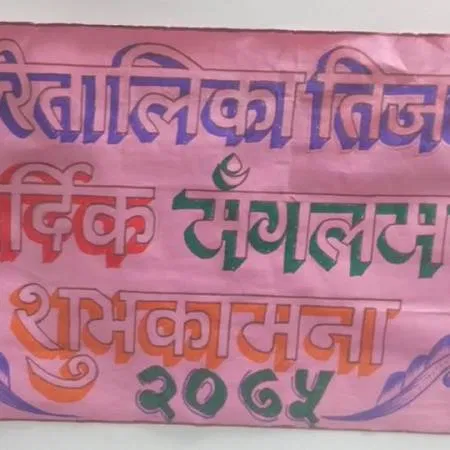 रितालिका तिज
र्दिक मँगलम
शुभकामना
२०७५